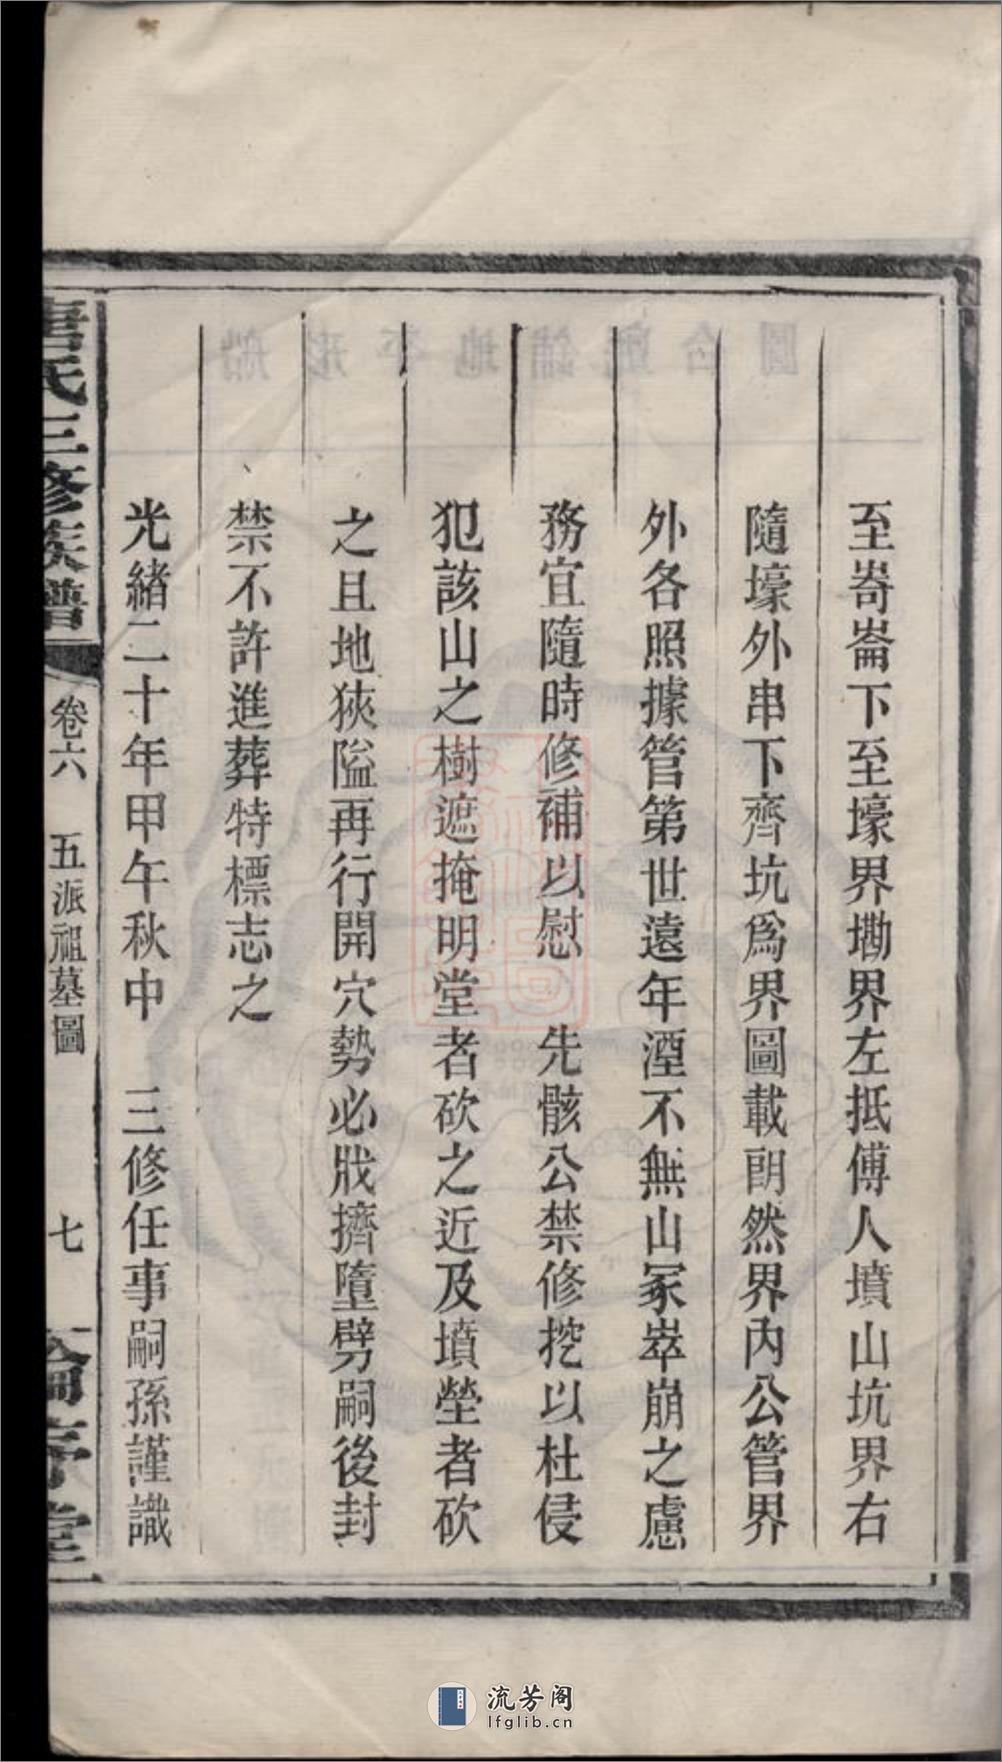 至嵜崙下至壕界墈界左抵傅人墳山坑界右
隨壕外串下齊坑爲界圖載朗然界內公管界
外各照據管第世遠年湮不無山冢崒崩之慮
務宜隨時修補以慰　先骸公禁修挖以杜侵
犯該山之樹遮掩明堂者砍之近及墳塋者砍
之且地狹隘再行開穴勢必戕擠墮劈嗣後封
禁不許進葬特標志之
光緒二十年甲午秋中　三修任事嗣孫謹識
唐氏三修族譜　卷六　五派祖墓圖　七　倫序堂
流芳阁
lfglib.cn